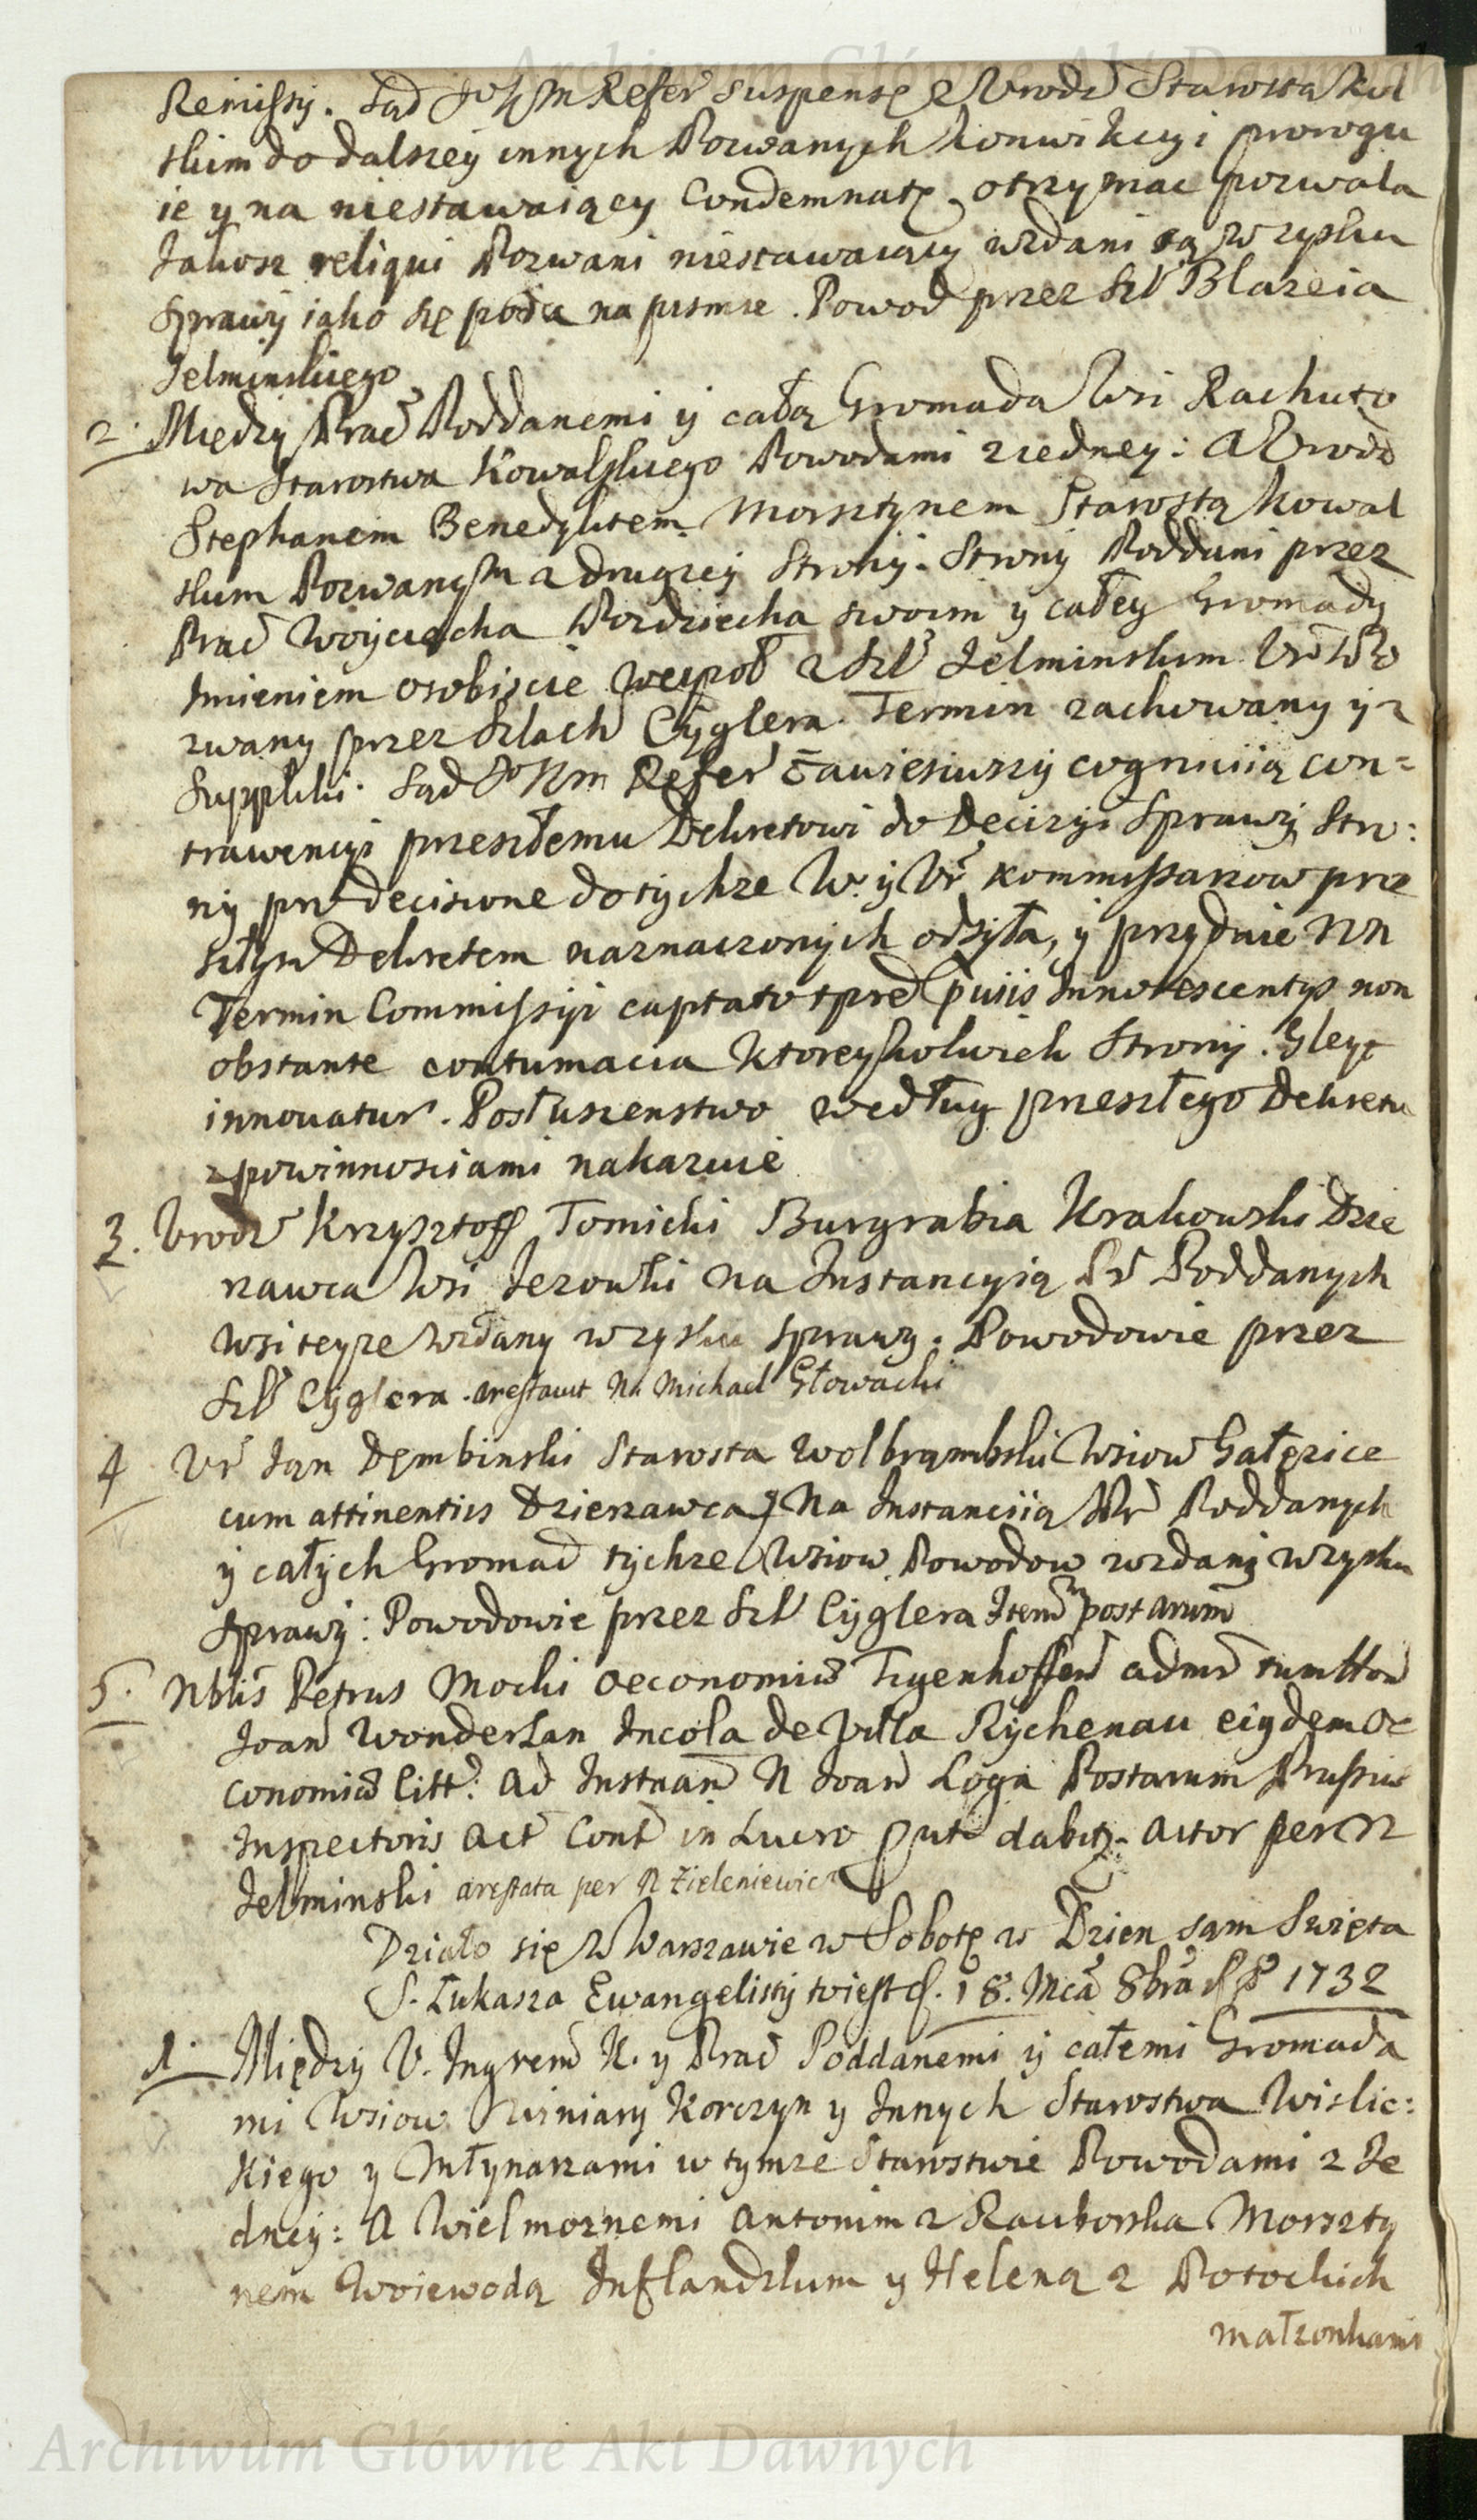 Archiwum Główne Akt Dawnych
Remissy. Sąd Refer suspensę Urodz Starosta Kol
skim do dalszey innych Pozwanych konwikcyi prorogu
ie y na niestawaiącey Condemnatę otrzymac pozwala
Jakosz reliqui Pozwani niestawaiący wzdani są w zysku
Sprawy iako się poda na pismie. Powod przez Szl Błazeia
Jelminskiego
2. Między Prac Poddanemi y całą Gromada Wsi Rachuto
wa Starostwa Kowalskiego Powodami z iedney: A Urodz
Stephanem Benedyktem Morsztynem Starostą Kowal
skim Pozwanym z drugiey Strony. Strony Poddani przez
Prac Woyciecha Pozdziecha swoim y całey Gromady
Imieniem osobiscie wespoł z Szl Jelminskim
zwany przez Szlach Cyglera. Termin zachowany y z
Supplki. Sąd Refer zawiesiwszy cognicią con=
trawencyi przeszłemu Dekretowi do Decizyi Sprawy Stro:
ny pro decisione do tychze W. y Ur Kommissarzow prze
szłym Dekretem naznaczonych odsyła, y przydaie NN
Termin Commissyi captato Innotescentys non
obstante contumacia ktoreyskolwiek Strony. Gleyt
innouatur. Posłuszenstwo według przeszłego Dekretu
z powinnosciami nakazuie
3. Urodz Krzysztoff Tomicki Burgrabia Krakowski Dzie
rzawca Wsi Jezowki na Instancyią Pr Poddanych
Wsi teyze wzdany w zysku sprawy. Powodowie przez
Szl Cyglera. Michael Głowacki
4 Ur Jan Dęmbinski Starosta Wolbrąmbski Wsiow Gałęzice
cum attinentiis Dzierzawca na Instanciią Pr Poddanych
y całych Gromad tychze Wsiow Powodow wzdany w zysku
Sprawy: Powodowie przez Szl Cyglera
5. Nblis Petrus Mocki Oeconomiæ Tygenhoffen admr tum Hon
Joan Wondersan Incola de Villa Rychenau eiqdem Oe
conomiæ Citt: ad Instnam N Joan Loga Postarum Prussiæ
Inspectoris Act Cont in Lucro put dabitz. Actor per N
Jelminski arestata per N Zieleniewicz
Działo się w Warszawie w Sobotę w Dzien sam Swięta
S. Łukasza Ewangelisty to iest d. 18. Mca 8bra 1732
1. Między U. Ingrem N. y Prac Poddanemi y całemi Gromada
mi Wsiow Winiary Korczyn y Innych Starostwa Wislic:
kiego y Młynarzami w tymze Starostwie Powodami z Ie
dney: A Wielmoznemi Antonim z Raciborska Morszty
nem Woiewodą Inflandzkim y Heleną z Potockich
małzonkami
Archiwum Główne Akt Dawnych